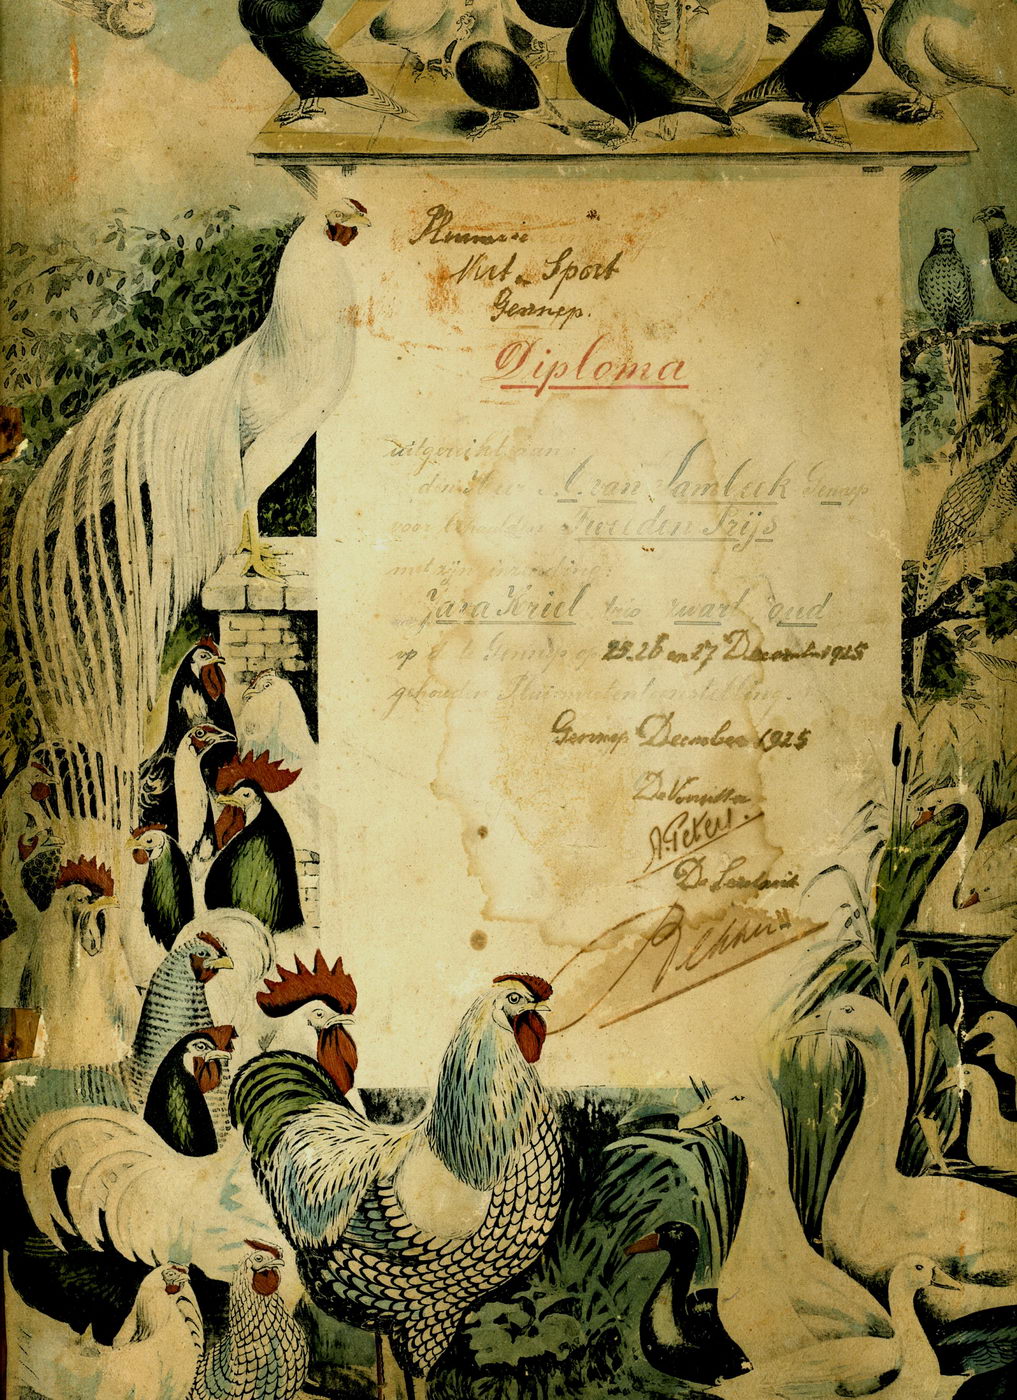 Nut en Sport
Gennep.
Diploma
uitgereikt aan
den Heer A. van Sambeek Gennep
voor behaalden Tweeden Prijs
met zijn inzending:
Java Kriel trio zwart oud
op de te Gennep op 25. 26 en 27 December 1925
gehouden Pluimveetentoonstelling.
Gennep December 1925
De Voorzitter
De Secretaris